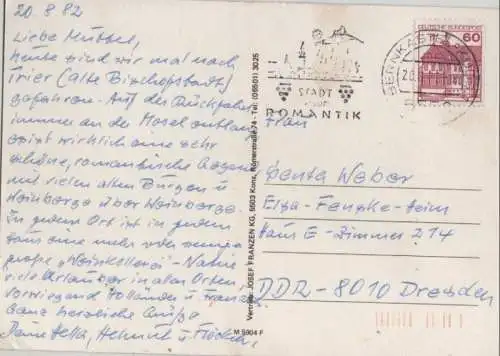 20.8.82
Liebe Muttel,
heute sind wir mal nach
Trier (alte Bischofsstadt)
gefahren. Auf der Rückfahrt,
immer an der Mosel entlang
es ist wirklich eine sehr
schöne, romantische Gegend
mit vielen alten Burgen u.
Weinberge über Weinberge.
In jedem Ort ist in jedem
Haus eine mehr oder weniger
große „Weinkellerei“ - Natürl.
viele Urlauber in allen Orten,
vorwiegend Holländer u. Franz.
Ganz herzliche Grüße
Deine Helmut u.
Vertrieb: JOSEF FRANZEN KG, 5503 Konz, Römerstraße 74 - Tel. (06501) 3025
M 5904 F
STADT
DER
ROMANTIK
BERNKASTEL
20.
DEUTSCHE BUNDESPOST
60
Frau
Weber
Elsa-Fenske-Heim
Haus E - Zimmer 214
DDR - 8010 Dresden